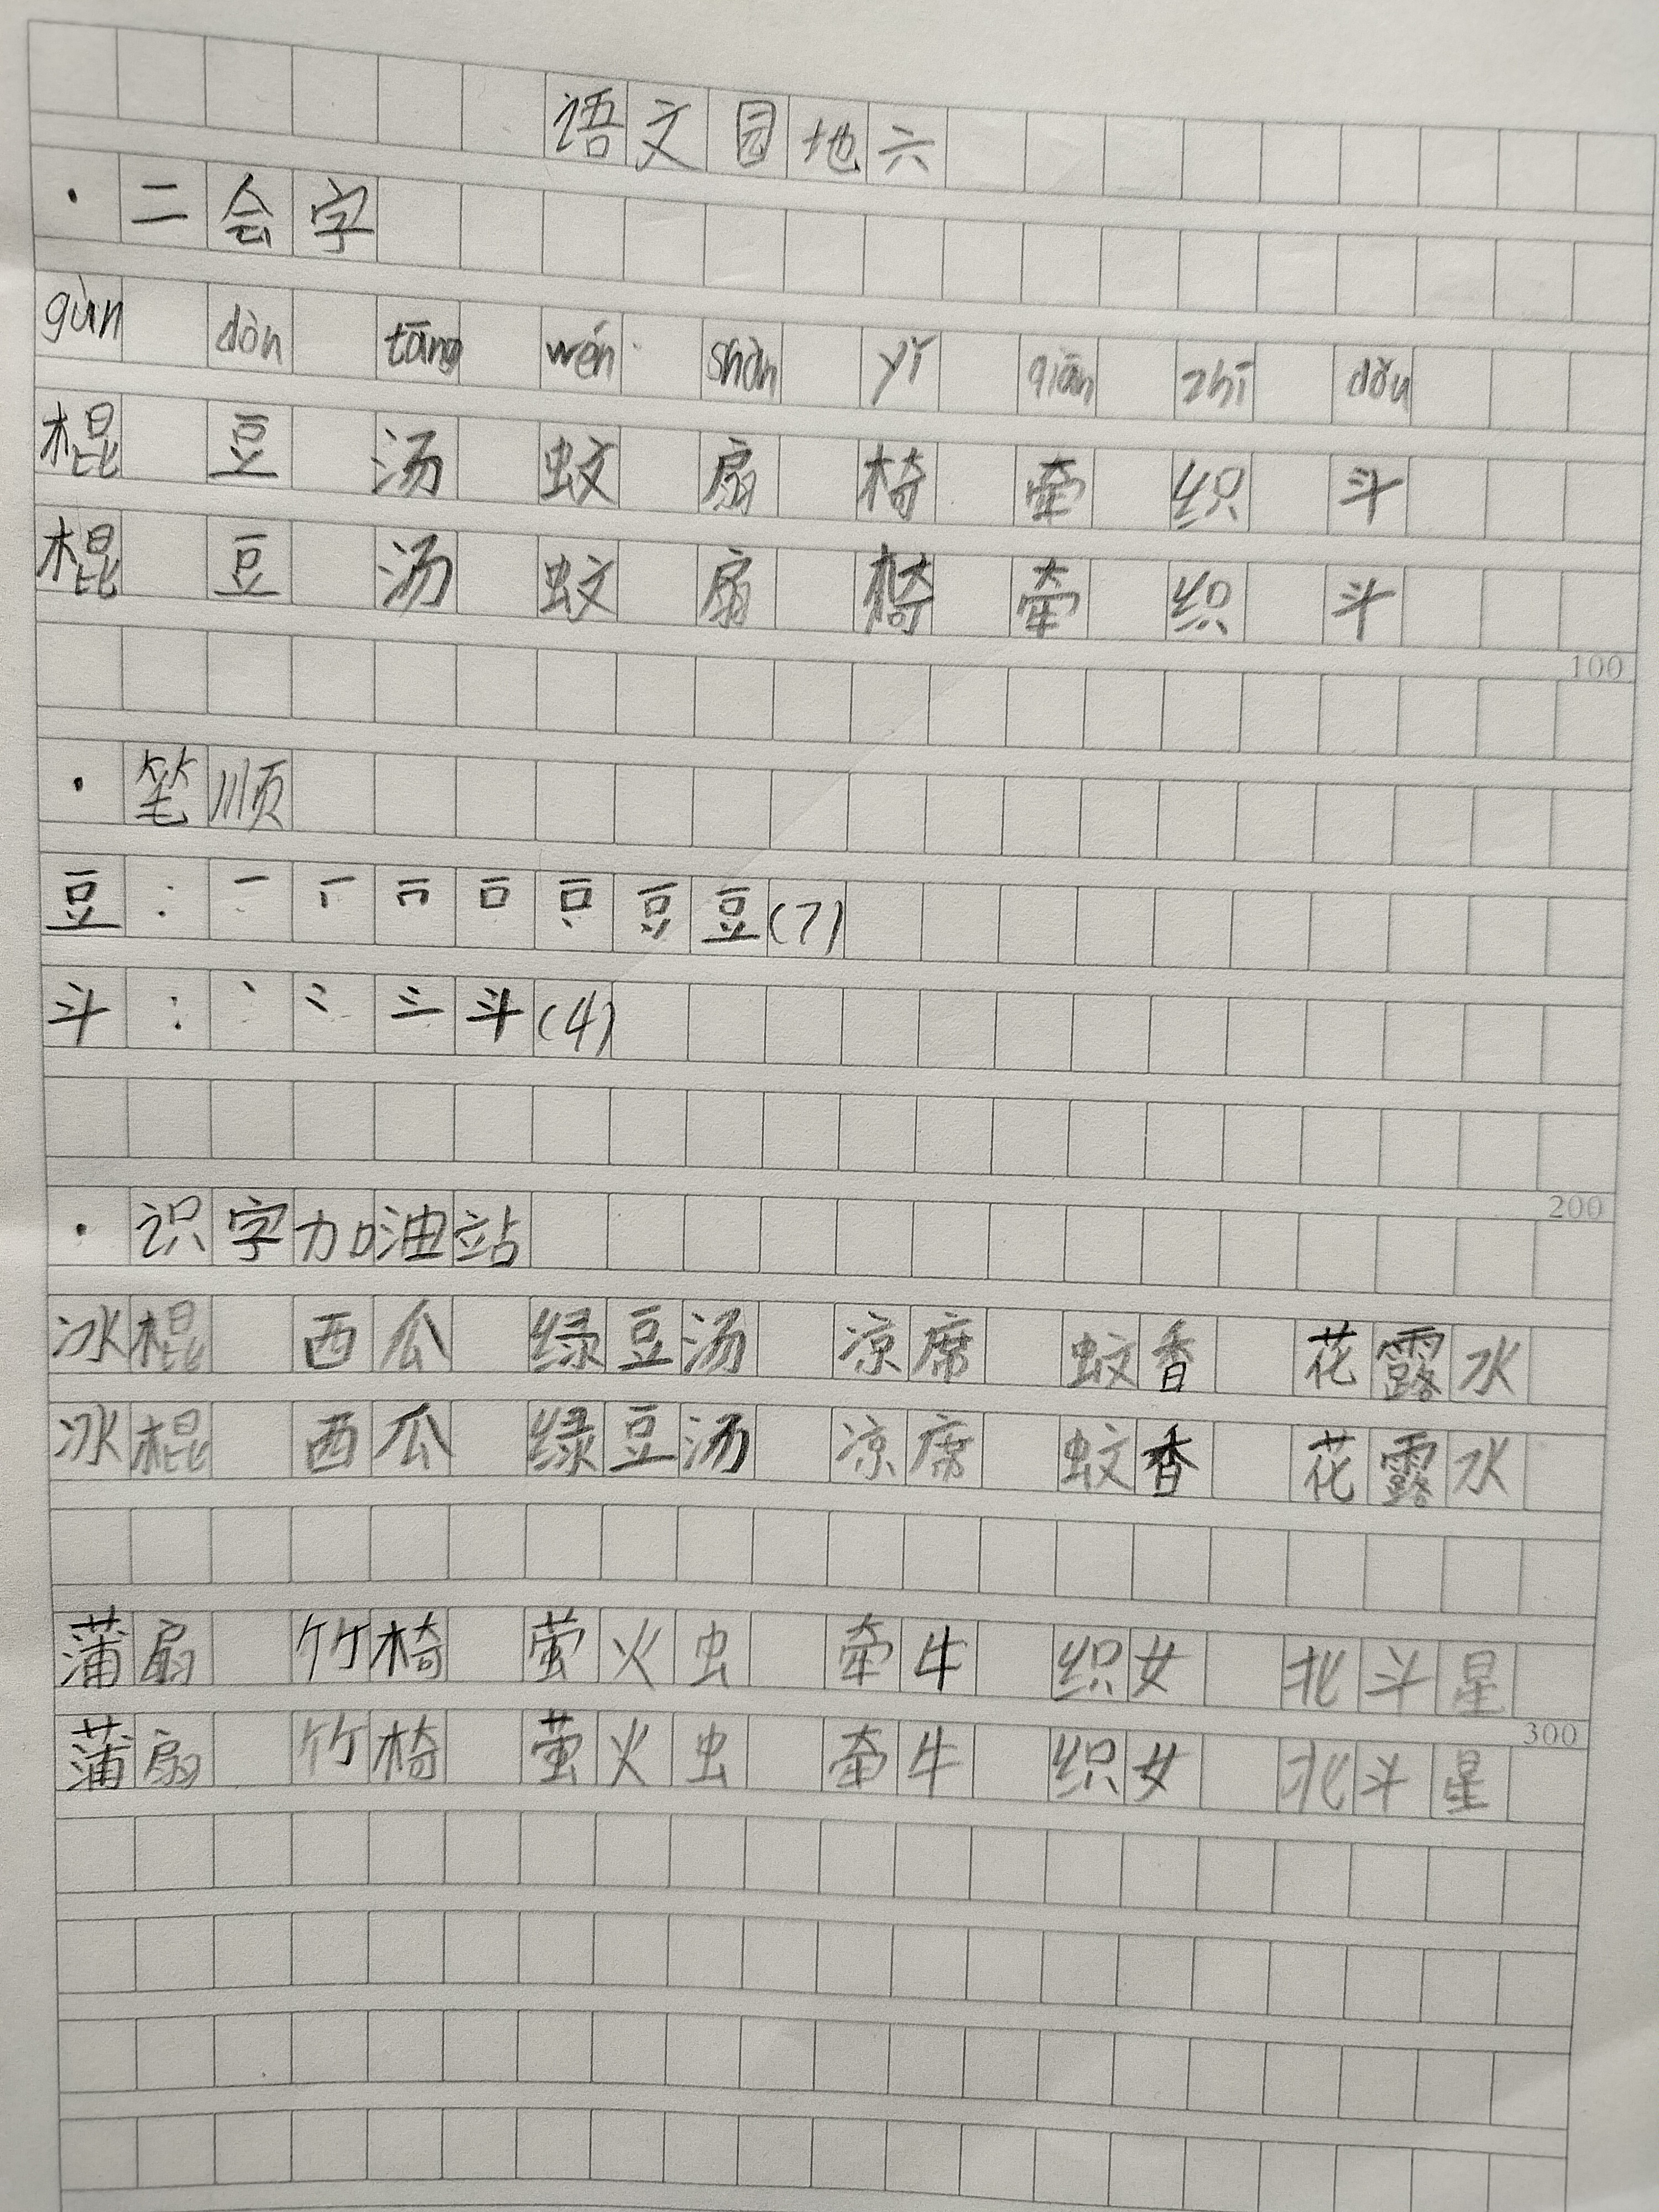 语文园地六
·二会字
gùn dòn tāng wén shàn yǐ qiān zhī dǒu
棍 豆 汤 蚊 扇 椅 牵 织 斗
棍 豆 汤 蚊 扇 椅 牵 织 斗
100
·笔顺
豆:豆(7)
斗:斗(4)
200
·识字加油站
冰棍 西瓜 绿豆汤 凉席 蚊香 花露水
冰棍 西瓜 绿豆汤 凉席 蚊香 花露水
蒲扇 竹椅 萤火虫 牵牛 织女 北斗星
300
蒲扇 竹椅 萤火虫 牵牛 织女 北斗星